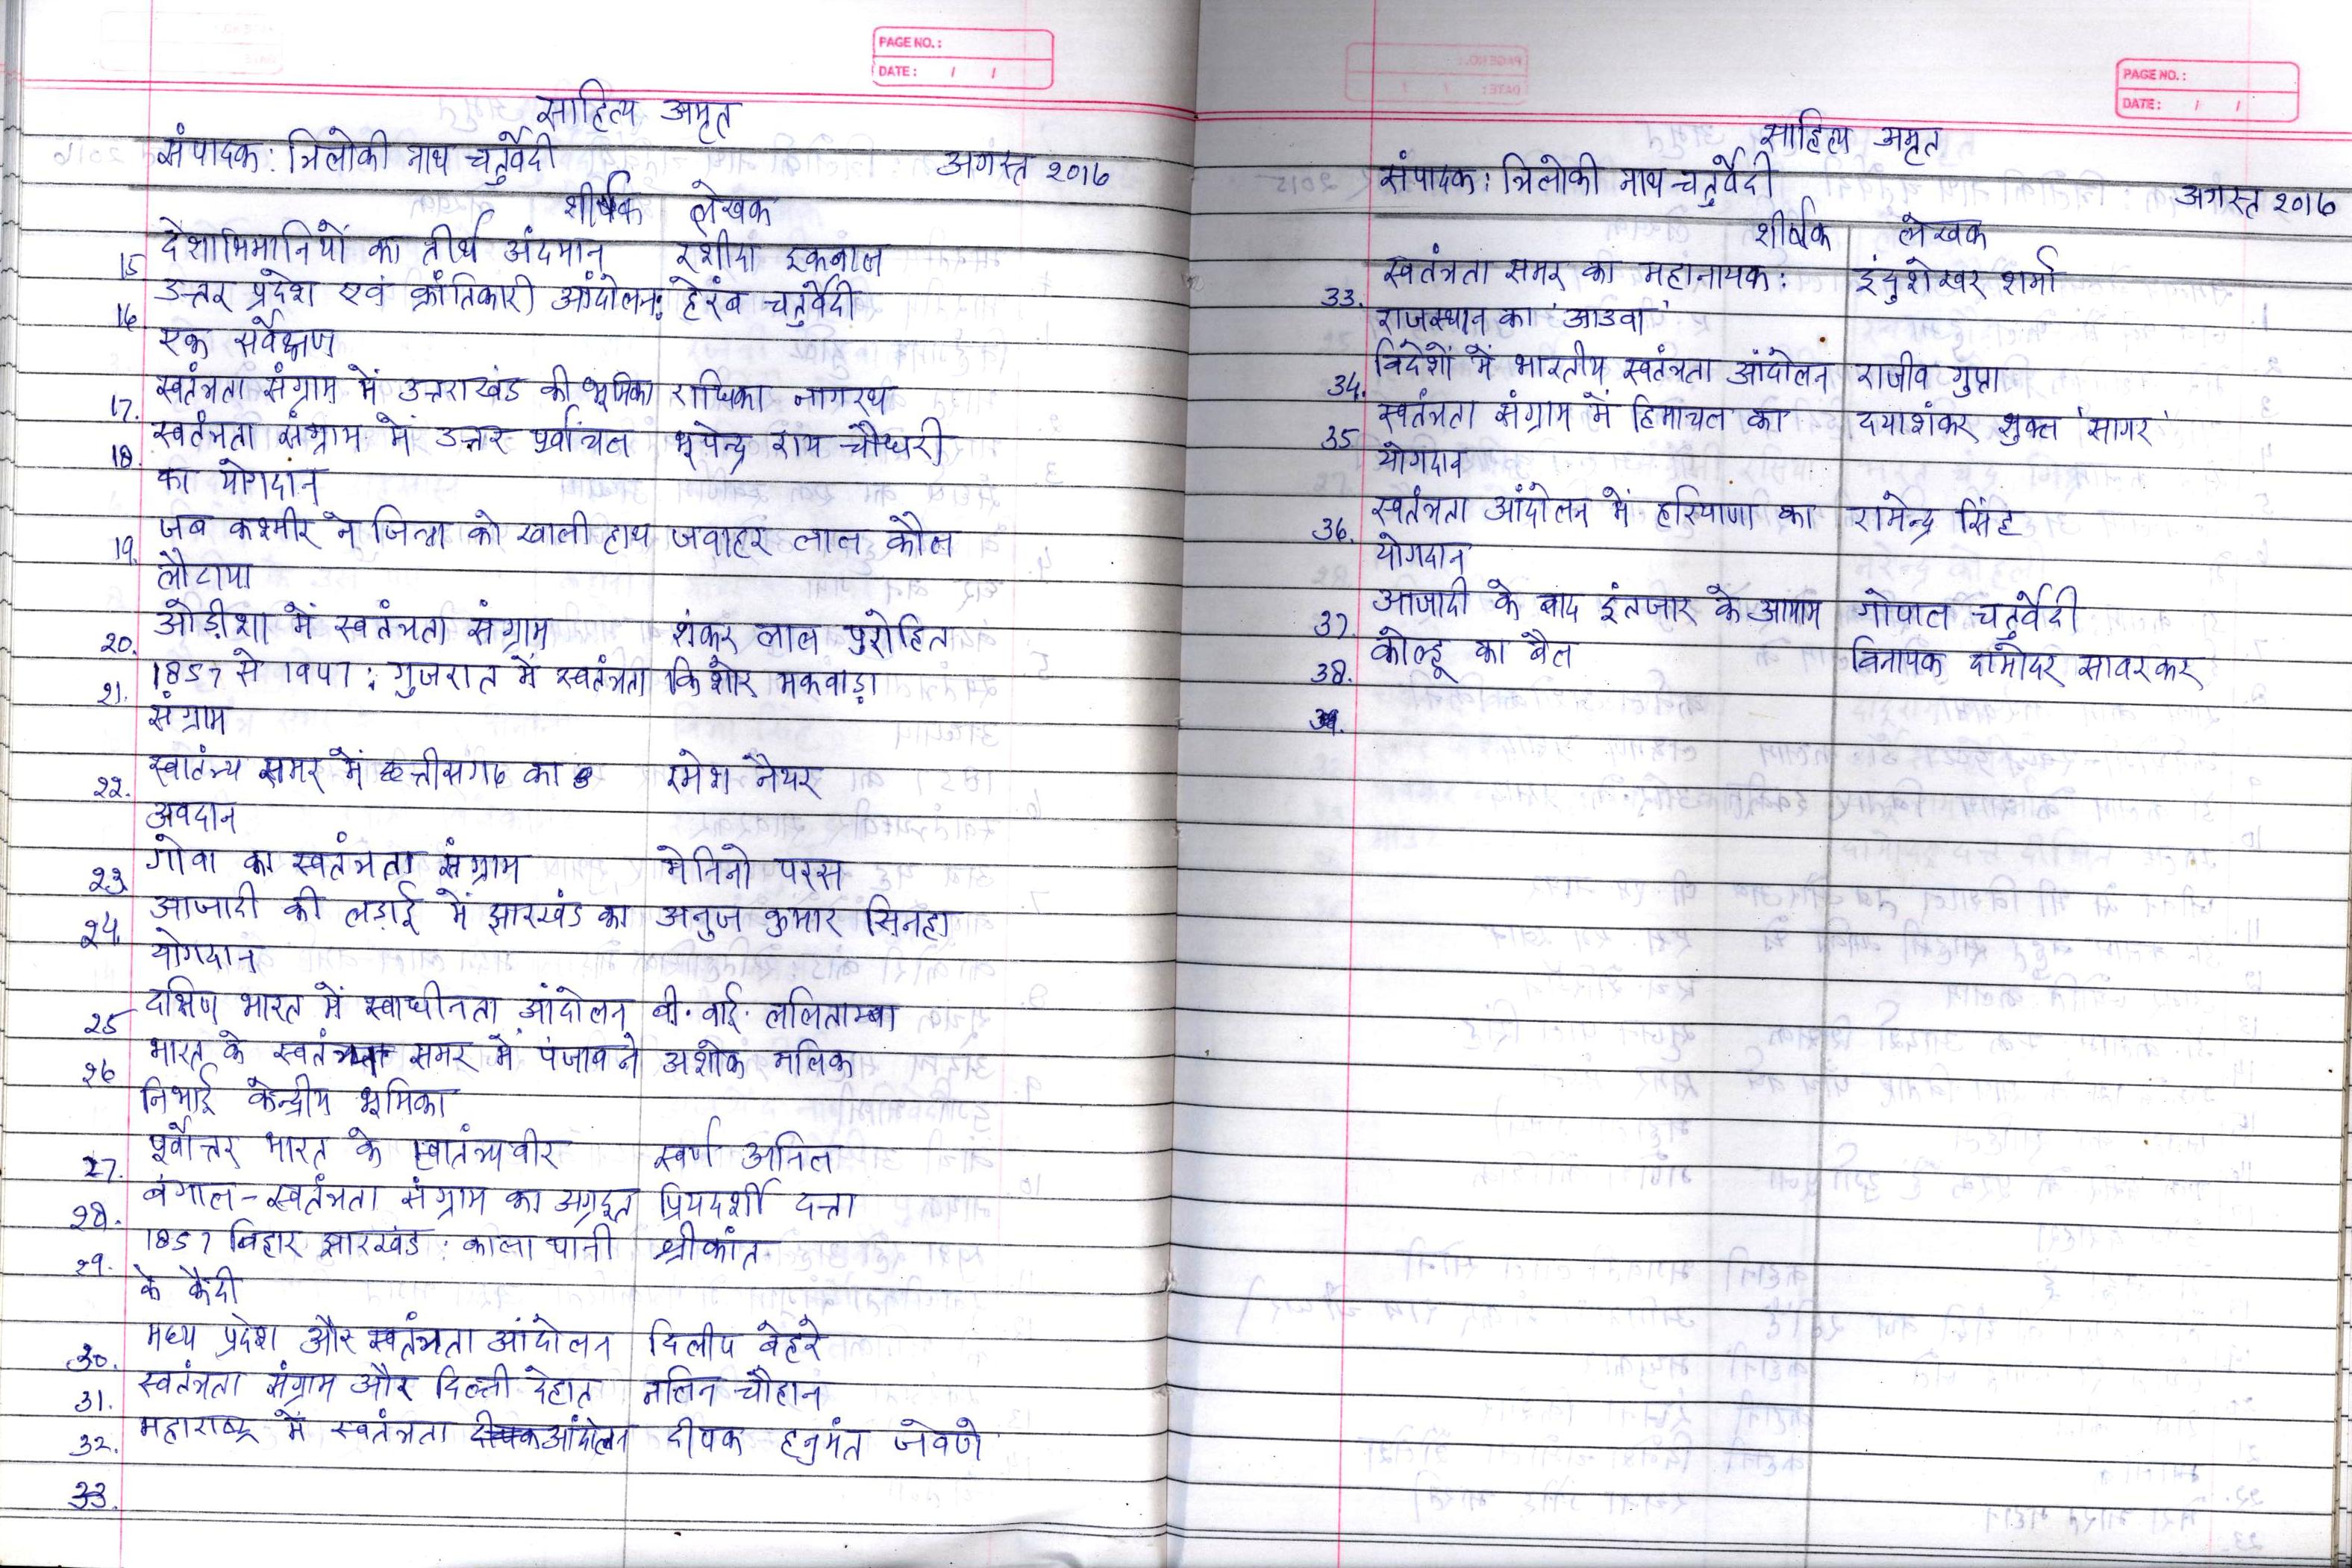 PAGE NO.:
DATE: / /
साहित्य अमृत
संपादक: त्रिलोकी नाथ चतुर्वेदी अगस्त २०१६
शीर्षक लेखक
15 देशाभिमानियों का तीर्थ अंदमान रशीदा इकबाल
16 उत्तर प्रदेश एवं क्रांतिकारी आंदोलन: हेरंब चतुर्वेदी
एक सर्वेक्षण
17. स्वतंत्रता संग्राम में उत्तराखंड की भूमिका राधिका नागरथ
18. स्वतंत्रता संग्राम में उत्तर पूर्वांचल भूपेन्द्र राय चौधरी
का योगदान
19. जब कश्मीर ने जिन्ना को खाली हाथ जवाहर लाल कौल
लौटाया
20. ओड़ीशा में स्वतंत्रता संग्राम शंकर लाल पुरोहित
21. 1857 से 1947 : गुजरात में स्वतंत्रता किशोर मकवाड़ा
संग्राम
22. स्वातंत्र्य समर में छत्तीसगढ का रमेश नैयर
अवदान
23. गोवा का स्वतंत्रता संग्राम मेतिनो परस
24. आजादी की लड़ाई में झारखंड का अनुज कुमार सिनहा
योगदान
25 दक्षिण भारत में स्वाधीनता आंदोलन बी. वाई. ललिताम्बा
26 भारत के स्वतंत्रता समर में पंजाब ने अशोक मलिक
निभाई केन्द्रीय भूमिका
27. पूर्वोत्तर भारत के स्वातंत्र्यवीर स्वर्ण अनिल
28. बंगाल - स्वतंत्रता संग्राम का अग्रदूत प्रियदर्शी दत्ता
29. 1857 बिहार झारखंड : काला पानी श्रीकांत
के कैदी
30. मध्य प्रदेश और स्वतंत्रता आंदोलन दिलीप बेहरे
31. स्वतंत्रता संग्राम और दिल्ली देहात नलिन चौहान
32. महाराष्ट्र में स्वतंत्रता आंदोलन दीपक हनुमंत जेवणे
33.
PAGE NO.:
DATE: / /
साहित्य अमृत
संपादक: त्रिलोकी नाथ चतुर्वेदी अगस्त २०१६
शीर्षक लेखक
33. स्वतंत्रता समर का महानायक: इंदुशेखर शर्मा
राजस्थान का 'आउवा'
34. विदेशों में भारतीय स्वतंत्रता आंदोलन राजीव गुप्ता
35 स्वतंत्रता संग्राम में हिमाचल का दयाशंकर शुक्ल 'सागर'
योगदान
36. स्वतंत्रता आंदोलन में हरियाणा का रामेन्द्र सिंह
योगदान
37. आजादी के बाद इंतजार के आयाम गोपाल चतुर्वेदी
38. कोल्हू का बैल विनायक दामोदर सावरकर
39.